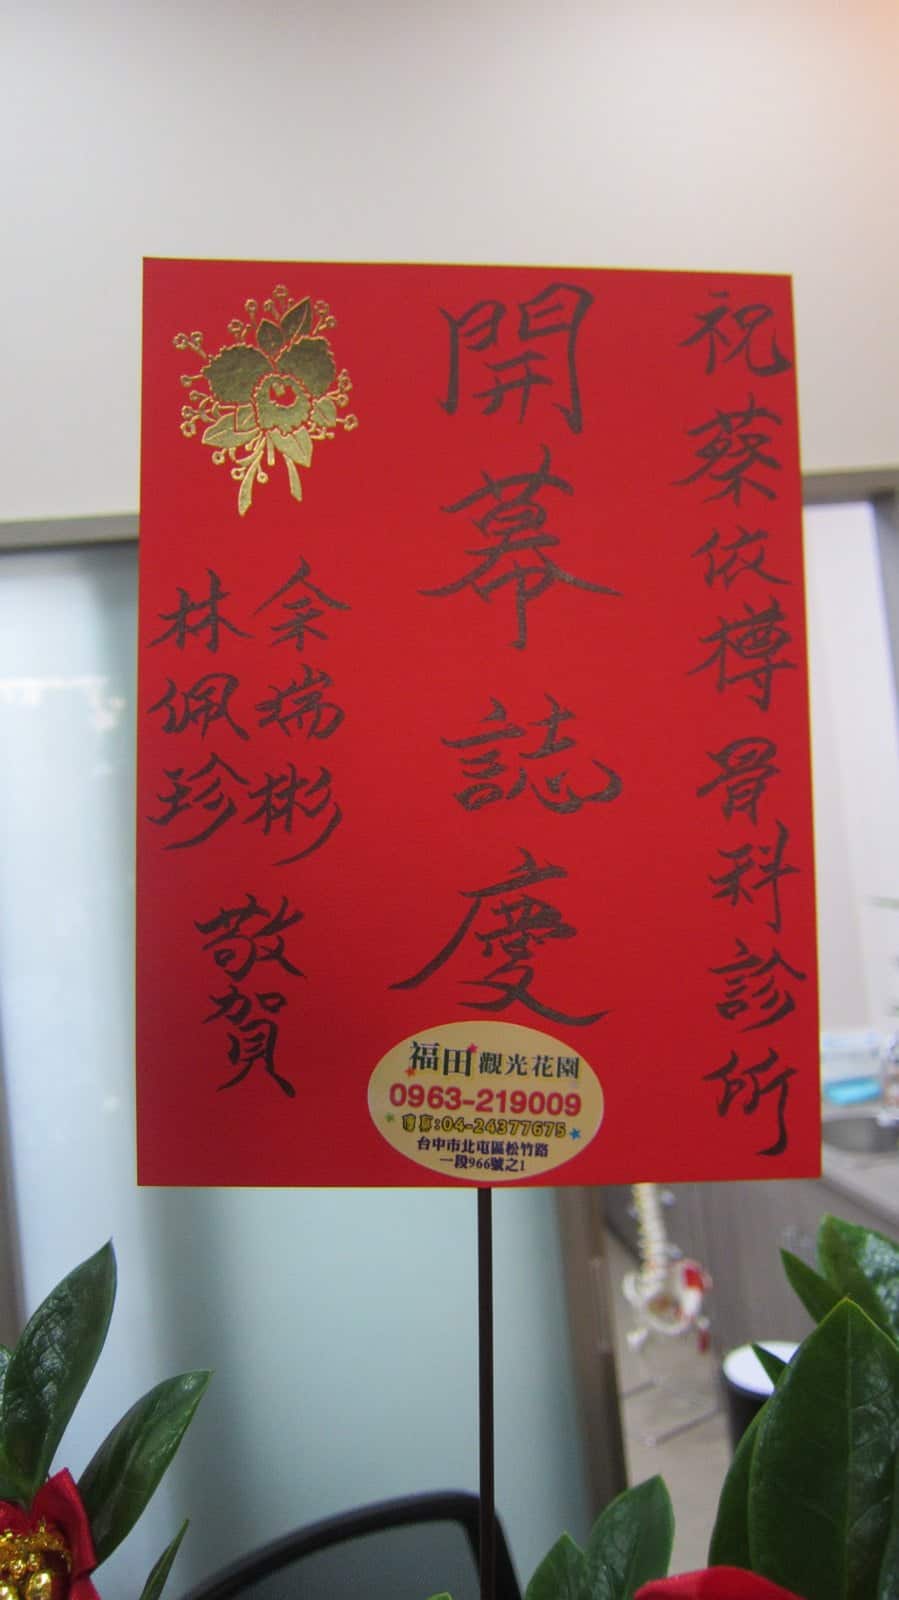 祝蔡依樽骨科診所
開幕誌慶
余瑞彬
林佩珍
敬賀
福田觀光花園
0963-219009
傳真:04-24377675
台中市北屯區松竹路
一段966號之1